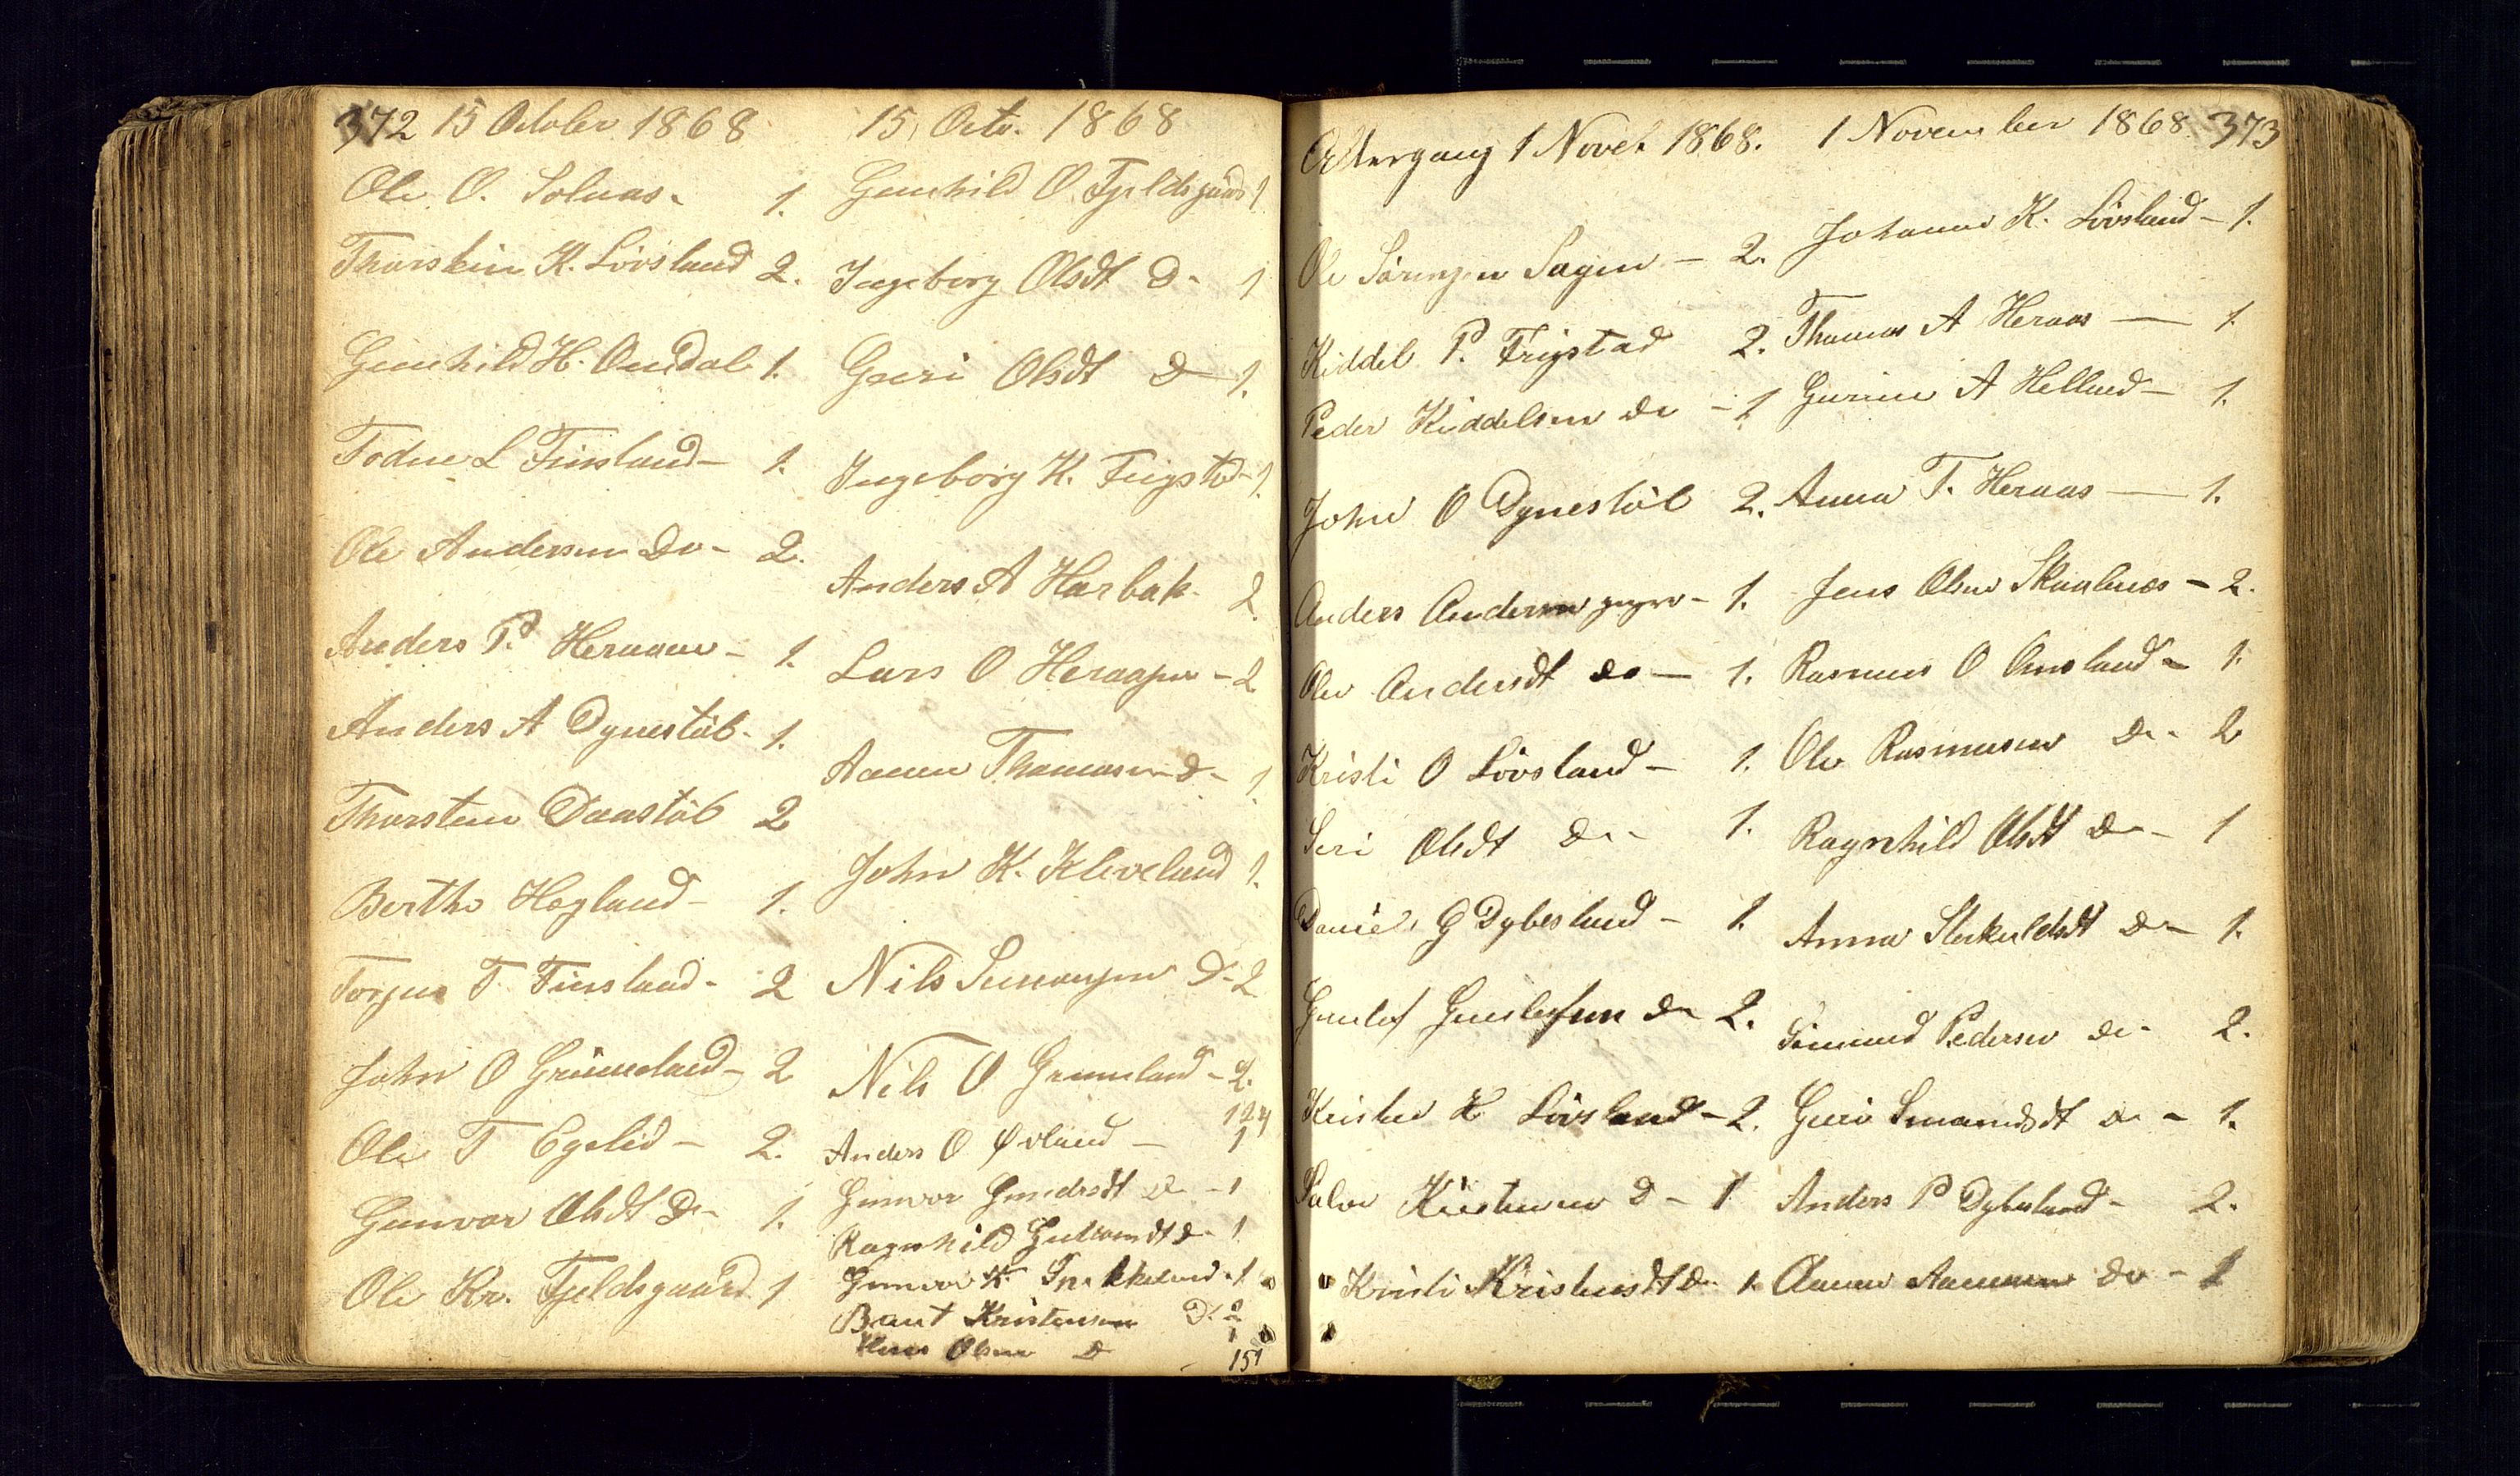 372 15 October 1868
Ole O. Solaas. 1.
Thorstein K. Lövsland 2.
Gunhild H. Omdal 1.
Todne L Finsland - 1.
Ole Andersen Do - 2.
Anders P. Heraaen - 1.
Anders A Dynestöl - 1.
Thorsten Daastöl 2
Berthe Hegland - 1.
Torjus T Finsland - 2
John O Grimeland - 2
Ole T Egelid - 2.
Gunvor Olsdt D - 1.
Ole Kr. Fjeldsgaard 1
15, Octo. 1868
Gunhild O Fjeldsgaard 1
Ingeborg Olsdt D - 1
Guri Olsdt D - 1.
Ingeborg K. Frigsted - 1.
Anders A Harbak - 2
Lars O Heraasen - 2
Aanen Thomasen D - 1
John K. Kleveland 1.
Nils D - 2
Nils O Grimeland - 2.
124
Anders O Øvland - 1
Gunvor D - 1
Ragnhild D - 1
Gunvor K. 1
Bent Kristensen D. 2
Olsen D 1
151
Altergang 1 Novebr 1868.
Ole Sörensen Sagen - 2.
Kiddel P. Frigstad 2.
Peder Kiddelsen Do - 1
John O Dynestöl 2.
Anders Andersen - 1.
Andersdt do - 1.
Kristi O Lövsland - 1.
Siri Olsdt D - 1.
Daniel G Dybesland - 1.
Gunlef Gunlefsen D 2.
Kristen K Lövsland - 2.
Salve Kristensen D - 1
Kristi Kristensdt D 1.
1 November 1868 373
Johanne K. Lövsland - 1.
Thomas A Heraas - 1.
Gurine A Helland - 1.
Anna T. Heraas - 1.
Jens Olsen - 2.
Rasmus O Omsland - 1.
Ole Rasmusen D - 2
Ragnhild Olsdt D - 1
Anna D - 1.
Pedersen D - 2.
Guri D - 1.
Anders P Dybesland - 2.
Aanen Aanensen Do - 1